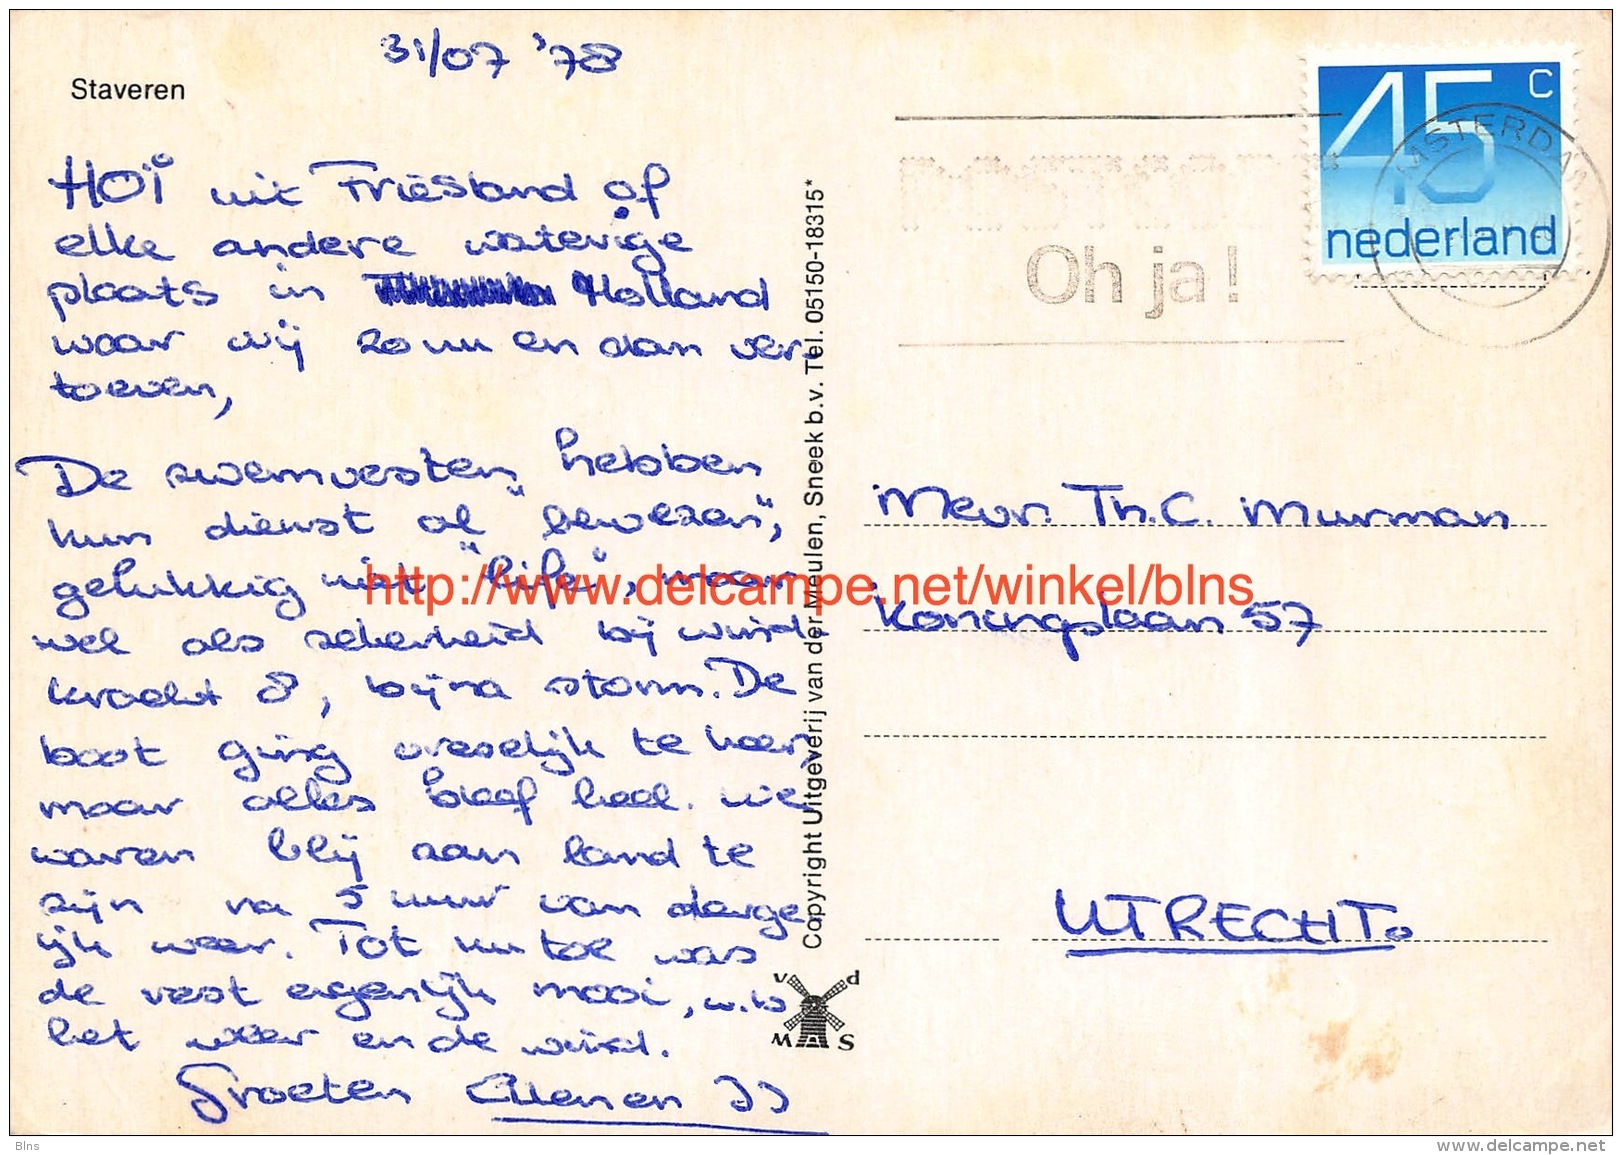 31/07 '78
Staveren
HOI uit Friesland of
elke andere waterige
plaats in Holland
waar wij zo nu en dan ver-
toeven,
De zwemvesten hebben
hun dienst al "bewezen",
gelukkig niet "life", maar
wel als zekerheid bij wind-
kracht 8, bijna storm. De
boot ging vreselijk te keer,
maar alles bleef heel. We
waren blij aan land te
zijn na 5 uur van derge-
lijk weer. Tot nu toe was
de rest eigenlijk mooi, w.b.
het weer en de wind.
Groeten Ellen en JJ
Copyright Uitgeverij van der Meulen, Sneek b.v. Tel. 05150-18315*
v d
M S
Oh ja!
45 c
nederland
AMSTERDAM
Mevr. Th.C. Murman
Koningslaan 57
UTRECHT.
http://www.delcampe.net/winkel/blns
Blns
www.delcampe.net